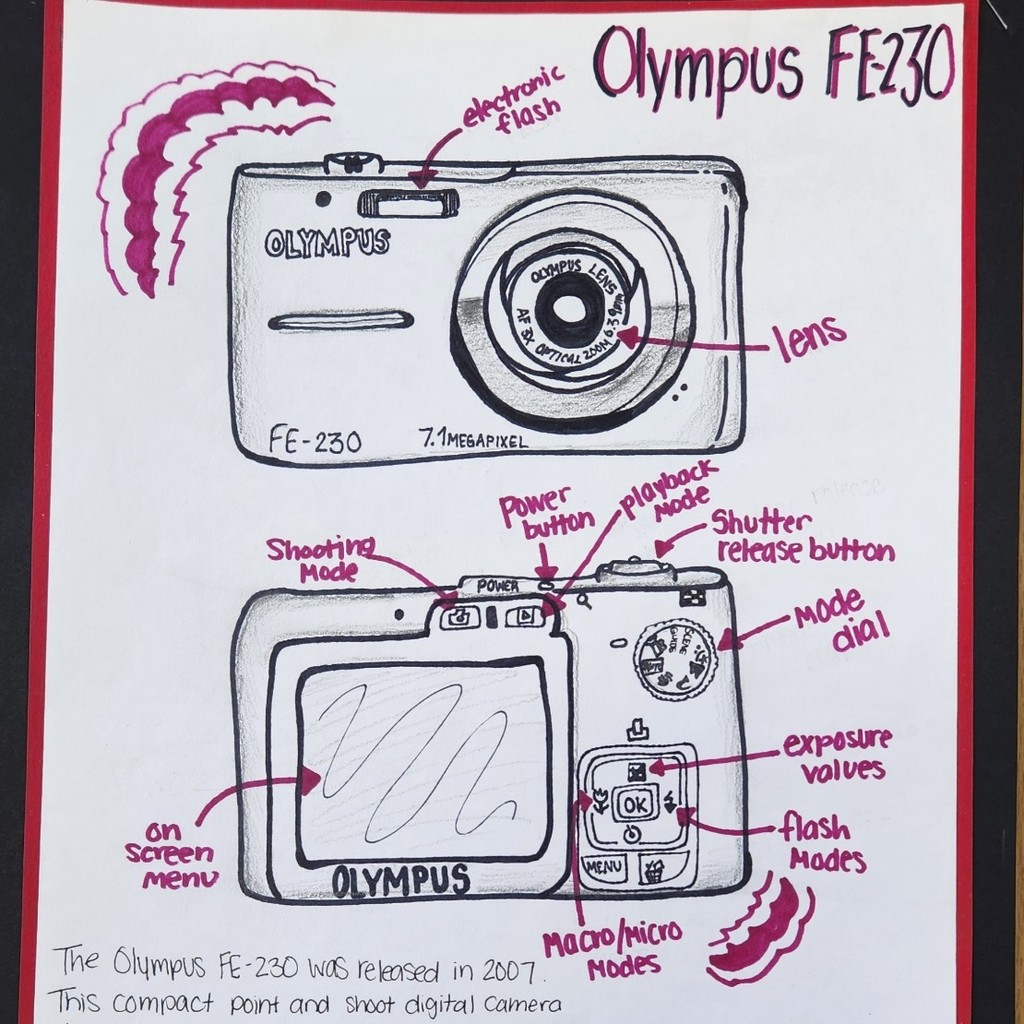 Olympus FE-230
electronic
flash
OLYMPUS
OLYMPUS LENS
AF 3X OPTICAL ZOOM 6.3
lens
FE-230
7.1 MEGAPIXEL
Power
button
playback
Mode
Shutter
release button
Shooting
Mode
POWER
Mode
dial
SCENE
GUIDE
exposure
values
OK
on
screen
menu
flash
Modes
MENU
OLYMPUS
Macro/micro
Modes
The Olympus FE-230 was released in 2007.
This compact point and shoot digital camera